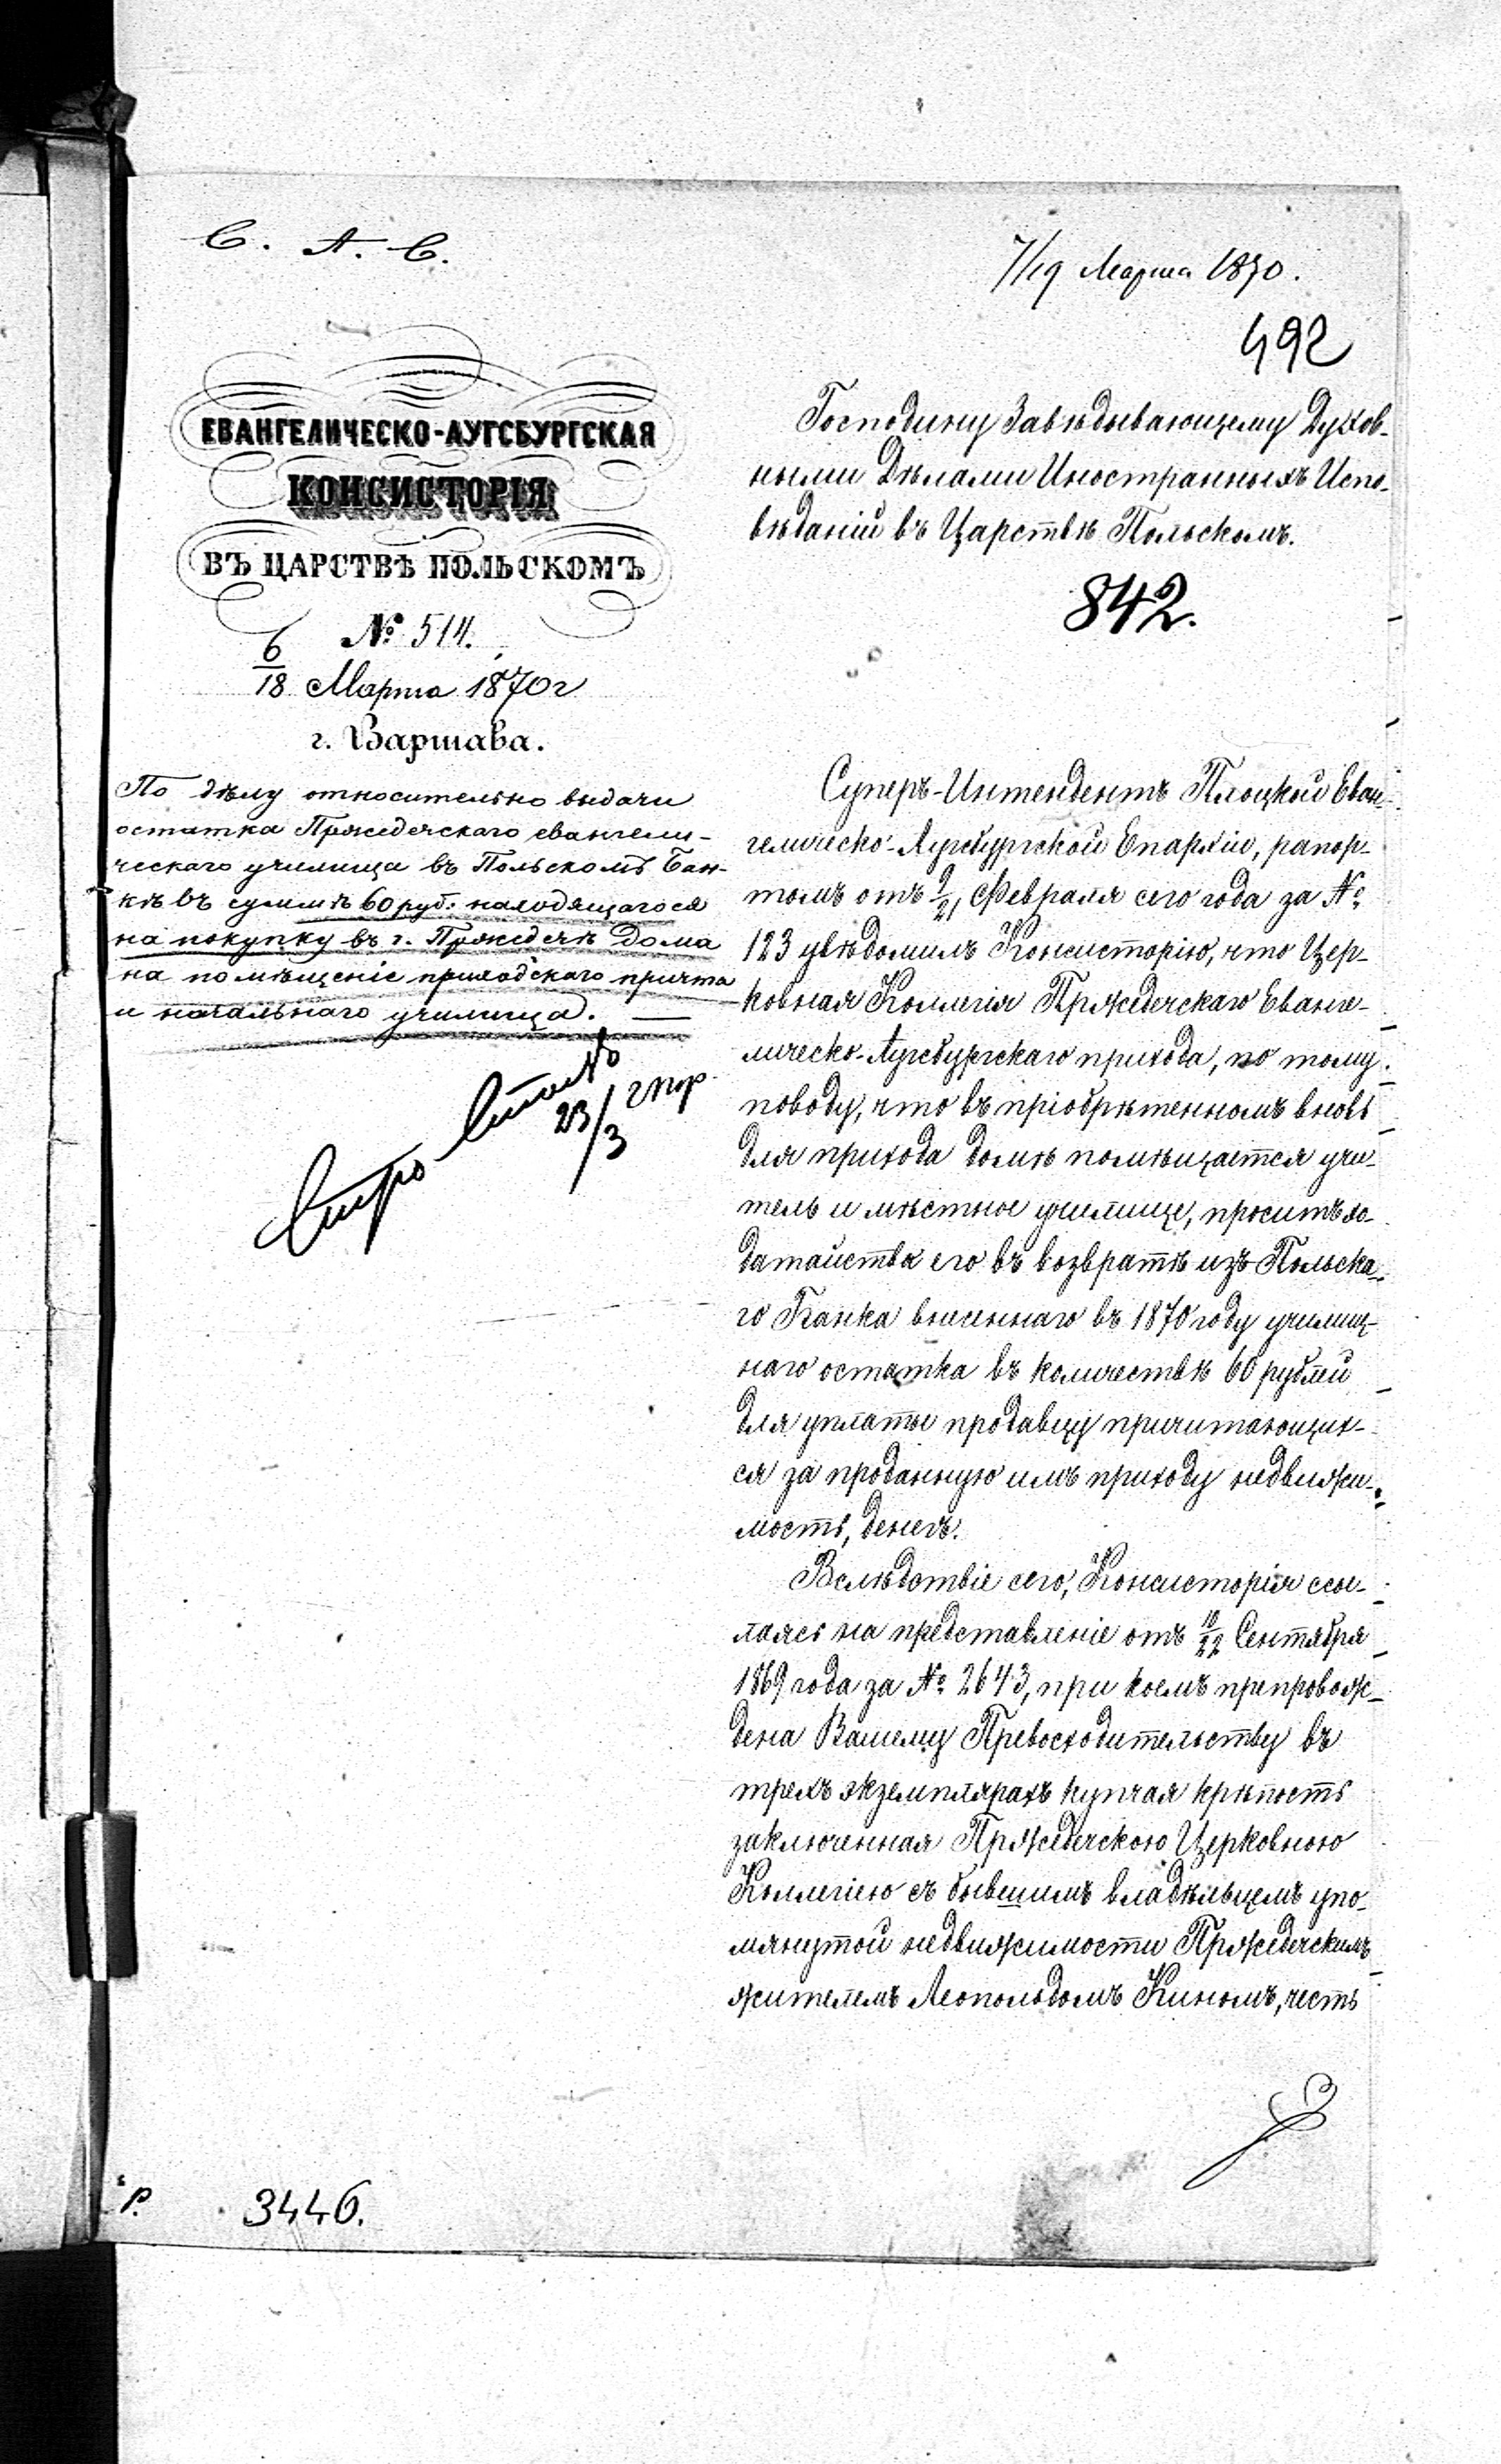 С. А. С.
7/19 Марта 1870.
492
ЕВАНГЕЛИЧЕСКО-АУГСБУРГСКАЯ
КОНСИСТОРІЯ
ВЪ ЦАРСТВѢ ПОЛЬСКОМЪ
№ 514.
6/18 Марта 1870 г
г. Варшава.
По дѣлу относительно выдачи
остатка Пржедечскаго евангели-
ческаго училища въ Польскомъ Бан-
кѣ въ суммѣ 60 руб: находящагося
на покупку въ г. Пржедечѣ дома
на помѣщеніе приходскаго причта
и начальнаго училища. —
23/3
Господину Завѣдывающему Духов-
ными Дѣлами Иностранныхъ Испо-
вѣданій въ Царствѣ Польскомъ.
842.
Суперъ-Интендентъ Плоцкой Еван-
гелическо-Аугсбургской Епархіи, рапор-
томъ отъ 9/21 Февраля сего года за №
123 увѣдомилъ Консисторію, что Цер-
ковная Коллегія Пржедечскаго Еванге-
лическо-Аугсбургскаго прихода, по тому
поводу, что въ пріобрѣтенномъ вновь
для прихода домѣ помѣщается учи-
тель и мѣстное училище, проситъ хо-
датайства его въ возвратѣ изъ Польска-
го Банка внесеннаго въ 1870 году училищ-
наго остатка въ количествѣ 60 рублей
для уплаты продавцу причитающих-
ся за проданную имъ приходу недвижи-
мость, денегъ.
Вслѣдствіе сего, Консисторія ссы-
лаясь на представленіе отъ 10/22 Сентября
1869 года за № 2643, при коемъ препровож-
дена Вашему Превосходительству въ
трехъ экземплярахъ купчая крѣпость
заключенная Пржедечскою Церковною
Коллегіею съ бывшимъ владѣльцемъ упо-
мянутой недвижимости Пржедечскимъ
жителемъ Леопольдомъ Киномъ, честь
Р. 3446.